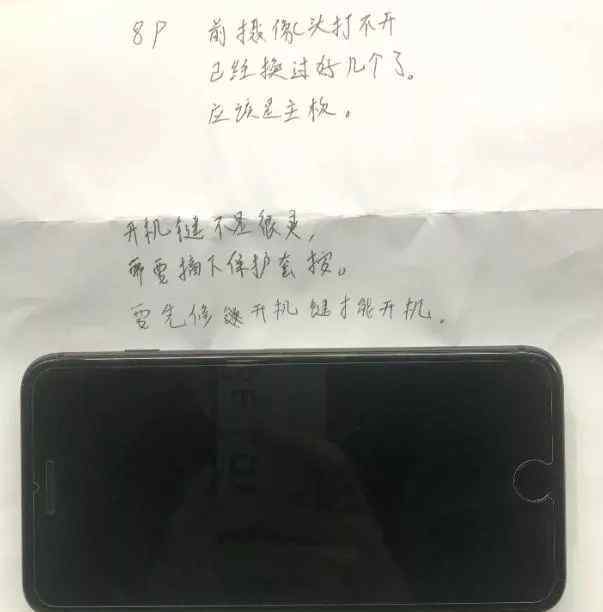 8P 前摄像头打不开
已经换过好几个了。
应该是主板。
开机键不是很灵，
需要摘下保护套按。
要先修开机键才能开机.